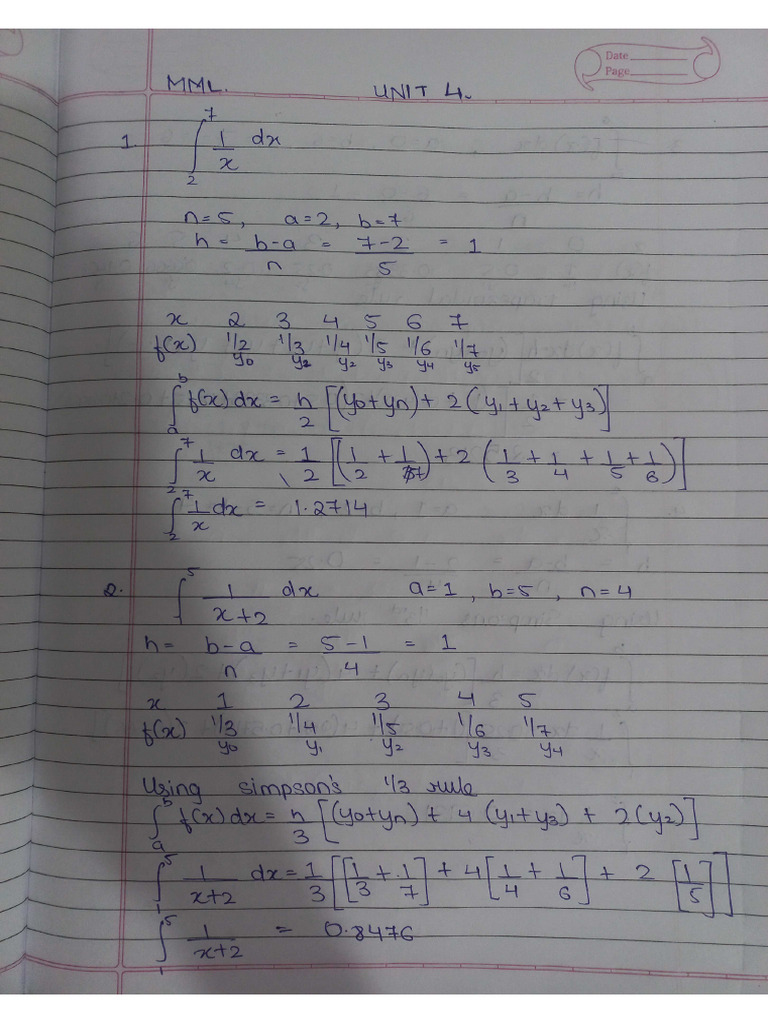 Date
Page
MML. UNIT 4.
1. ∫₂⁷ 1/x dx
n=5, a=2, b=7
h = b-a/n = 7-2/5 = 1
x 2 3 4 5 6 7
f(x) 1/2 1/3 1/4 1/5 1/6 1/7
y0 y2 y2 y3 y4 y5
∫ₐᵇ f(x) dx = h/2 [(y0+yn) + 2(y1+y2+y3)]
∫₂⁷ 1/x dx = 1/2 [(1/2 + 1/7) + 2(1/3 + 1/4 + 1/5 + 1/6)]
∫₂⁷ 1/x dx = 1.2714
2. ∫₁⁵ 1/x+2 dx a=1, b=5, n=4
h= b-a/n = 5-1/4 = 1
x 1 2 3 4 5
f(x) 1/3 1/4 1/5 1/6 1/7
y0 y1 y2 y3 y4
Using simpson's 1/3 rule
∫ₐᵇ f(x) dx = h/3 [(y0+yn) + 4(y1+y3) + 2(y2)]
∫₁⁵ 1/x+2 dx = 1/3 [[1/3 + 1/7] + 4[1/4 + 1/6] + 2[1/5]]
∫₁⁵ 1/x+2 = 0.8476